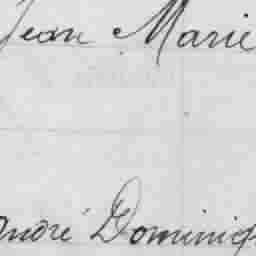 Jean Marie
André Dominiq